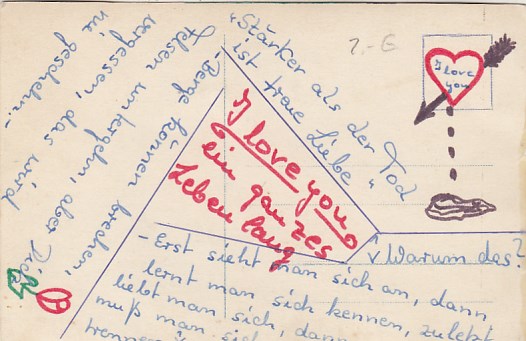 "Stärker als der Tod
ist treue Liebe"
2.- €
I love
you
- Berge können brechen,
Felsen untergehn, aber Dich
vergessen, das wird
nie geschehn.-
I love you
ein ganzes
Leben lang
Warum das?
- Erst sieht man sich an, dann
lernt man sich kennen, zuletzt
liebt man sich, dann
muß man sich
trennen